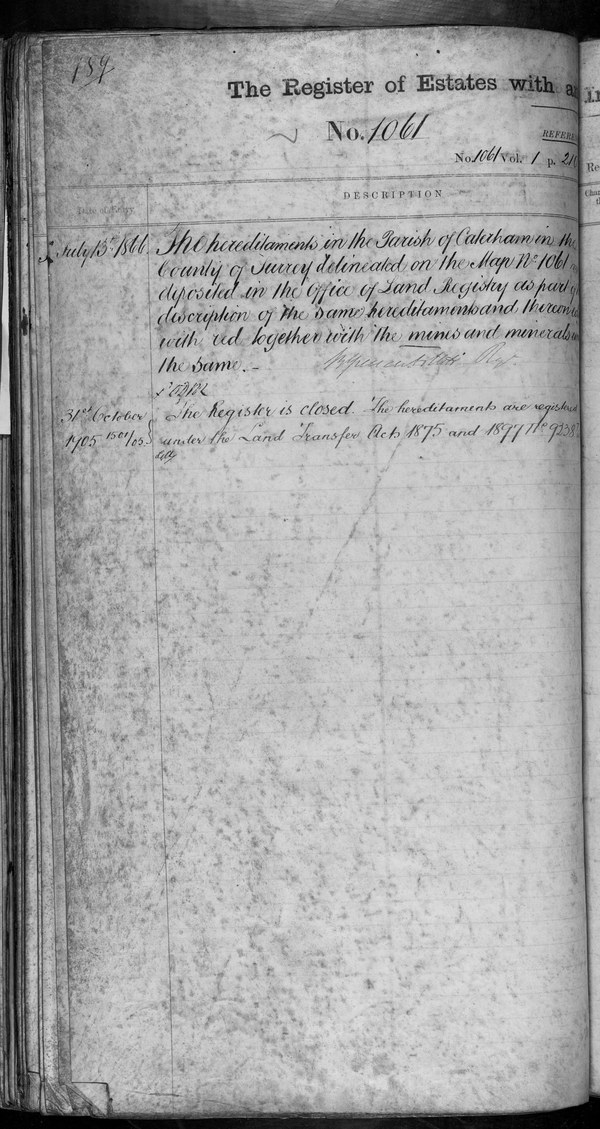 189
The Register of Estates with an
No. 1061
REFERE
No. 1061 Vol. 1 p. 210
Date of Entry.
DESCRIPTION
July 13th 1866. The hereditaments in the Parish of Caterham in the
County of Surrey delineated on the Map No 1061
deposited in the Office of Land Registry as part of
discription of the same hereditaments and thereon
with red together with the mines and minerals
the same. —
31st October The Register is closed. The hereditaments are registered
1905 1501/05. under the Land Transfer Acts 1875 and 1897 No 9238